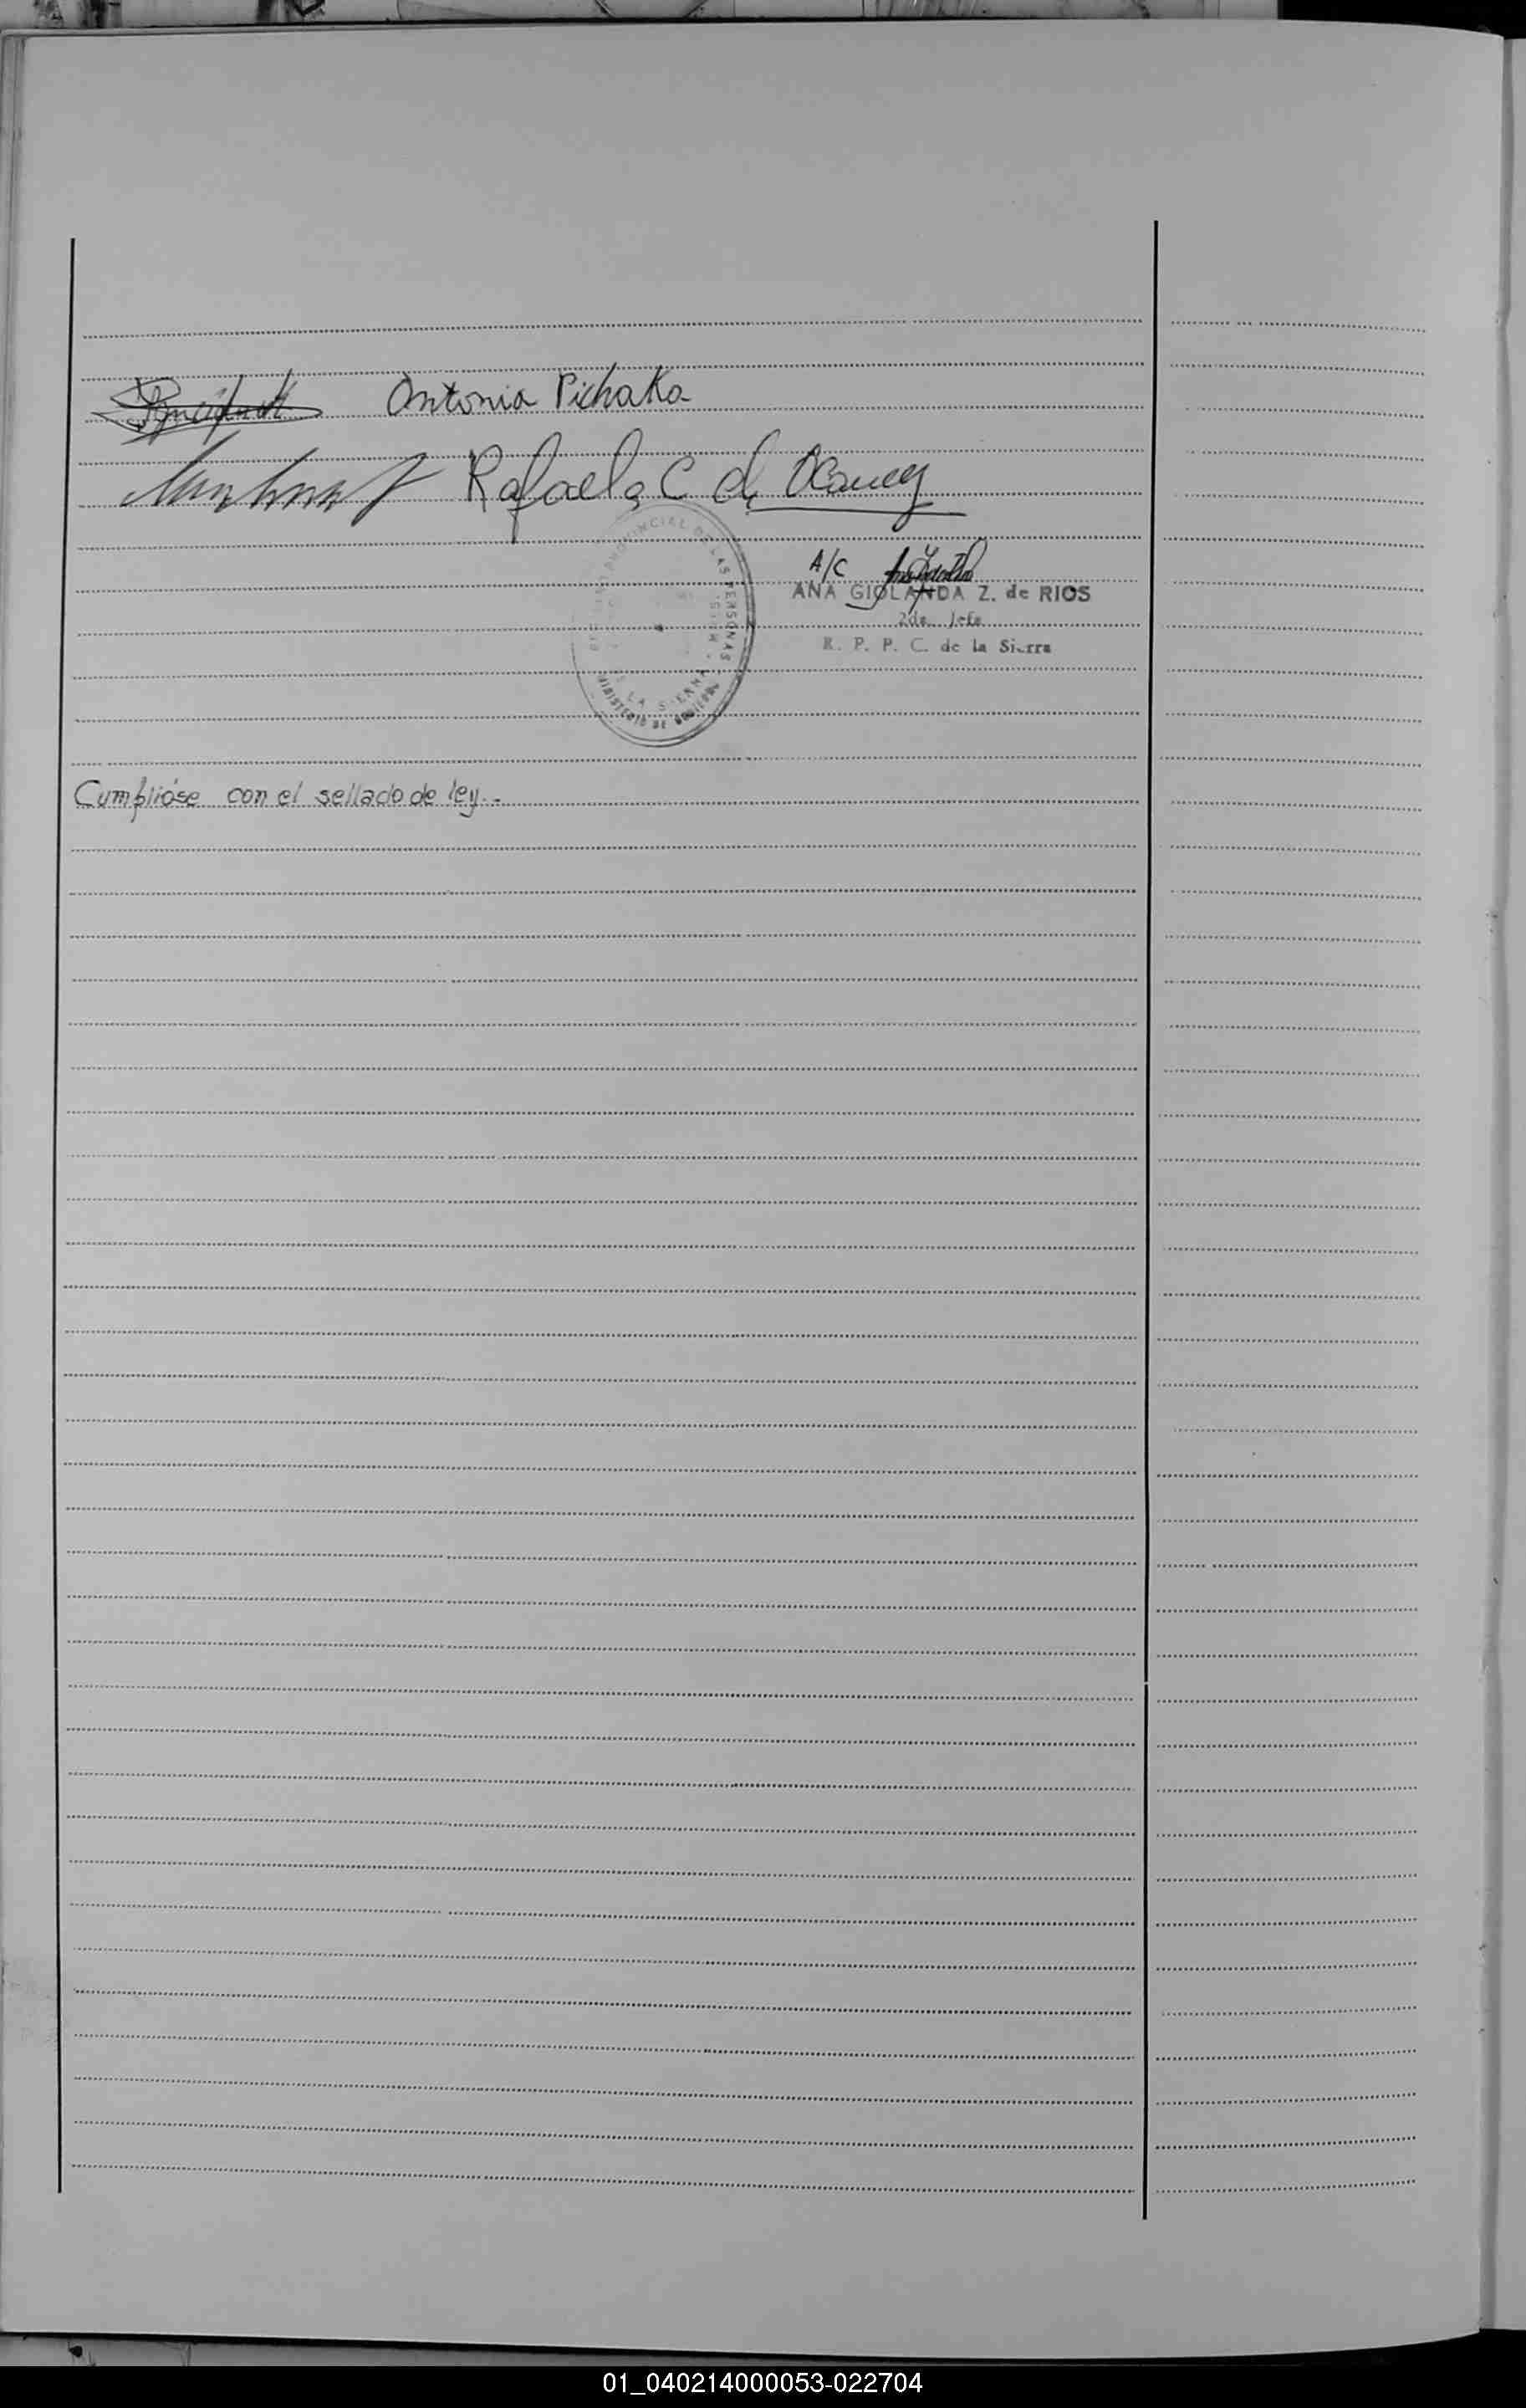 Antonia Pichaka
Rafaela C de
A/C
ANA GIOLANDA Z. de RIOS
2da. Jefe
R. P. P. C. de la Sierra
PROVINCIAL DE LAS PERSONAS
LA SIERRA
MINISTERIO DE GOBIERNO
Cumplióse con el sellado de ley.-
01_040214000053-022704